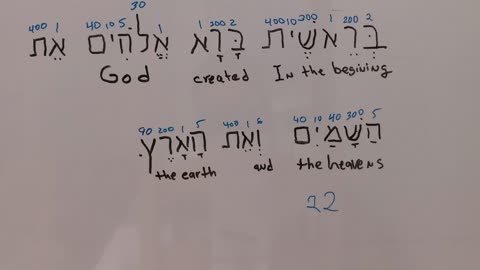 30
400 1 40 10 5 1 1 200 2 400 10 300 1 200 2
בְּרֵאשִׁית בָּרָא אֱלֹהִים אֵת
God created In the begining
90 200 1 5 400 1 6 40 10 40 300 5
הַשָּׁמַיִם וְאֵת הָאָרֶץ
the earth and the heavens
22